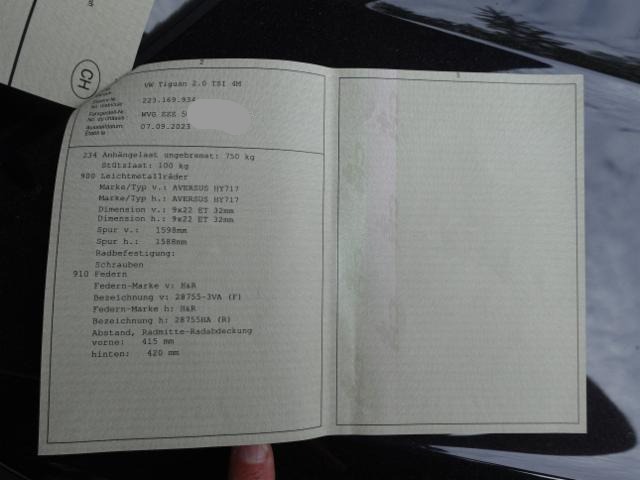 CH
2
VW Tiguan 2.0 TSI 4M
223.169.934
WVG ZZZ 5
Ausstelldatum: 07.09.2023
234 Anhängelast ungebremst: 750 kg
Stützlast: 100 kg
900 Leichtmetallräder
Marke/Typ v.: AVERSUS HY717
Marke/Typ h.: AVERSUS HY717
Dimension v.: 9x22 ET 32mm
Dimension h.: 9x22 ET 32mm
Spur v.: 1598mm
Spur h.: 1588mm
Radbefestigung:
Schrauben
910 Federn
Federn-Marke v: H&R
Bezeichnung v: 28755-3VA (F)
Federn-Marke h: H&R
Bezeichnung h: 28755HA (R)
Abstand, Radmitte-Radabdeckung
vorne: 415 mm
hinten: 420 mm